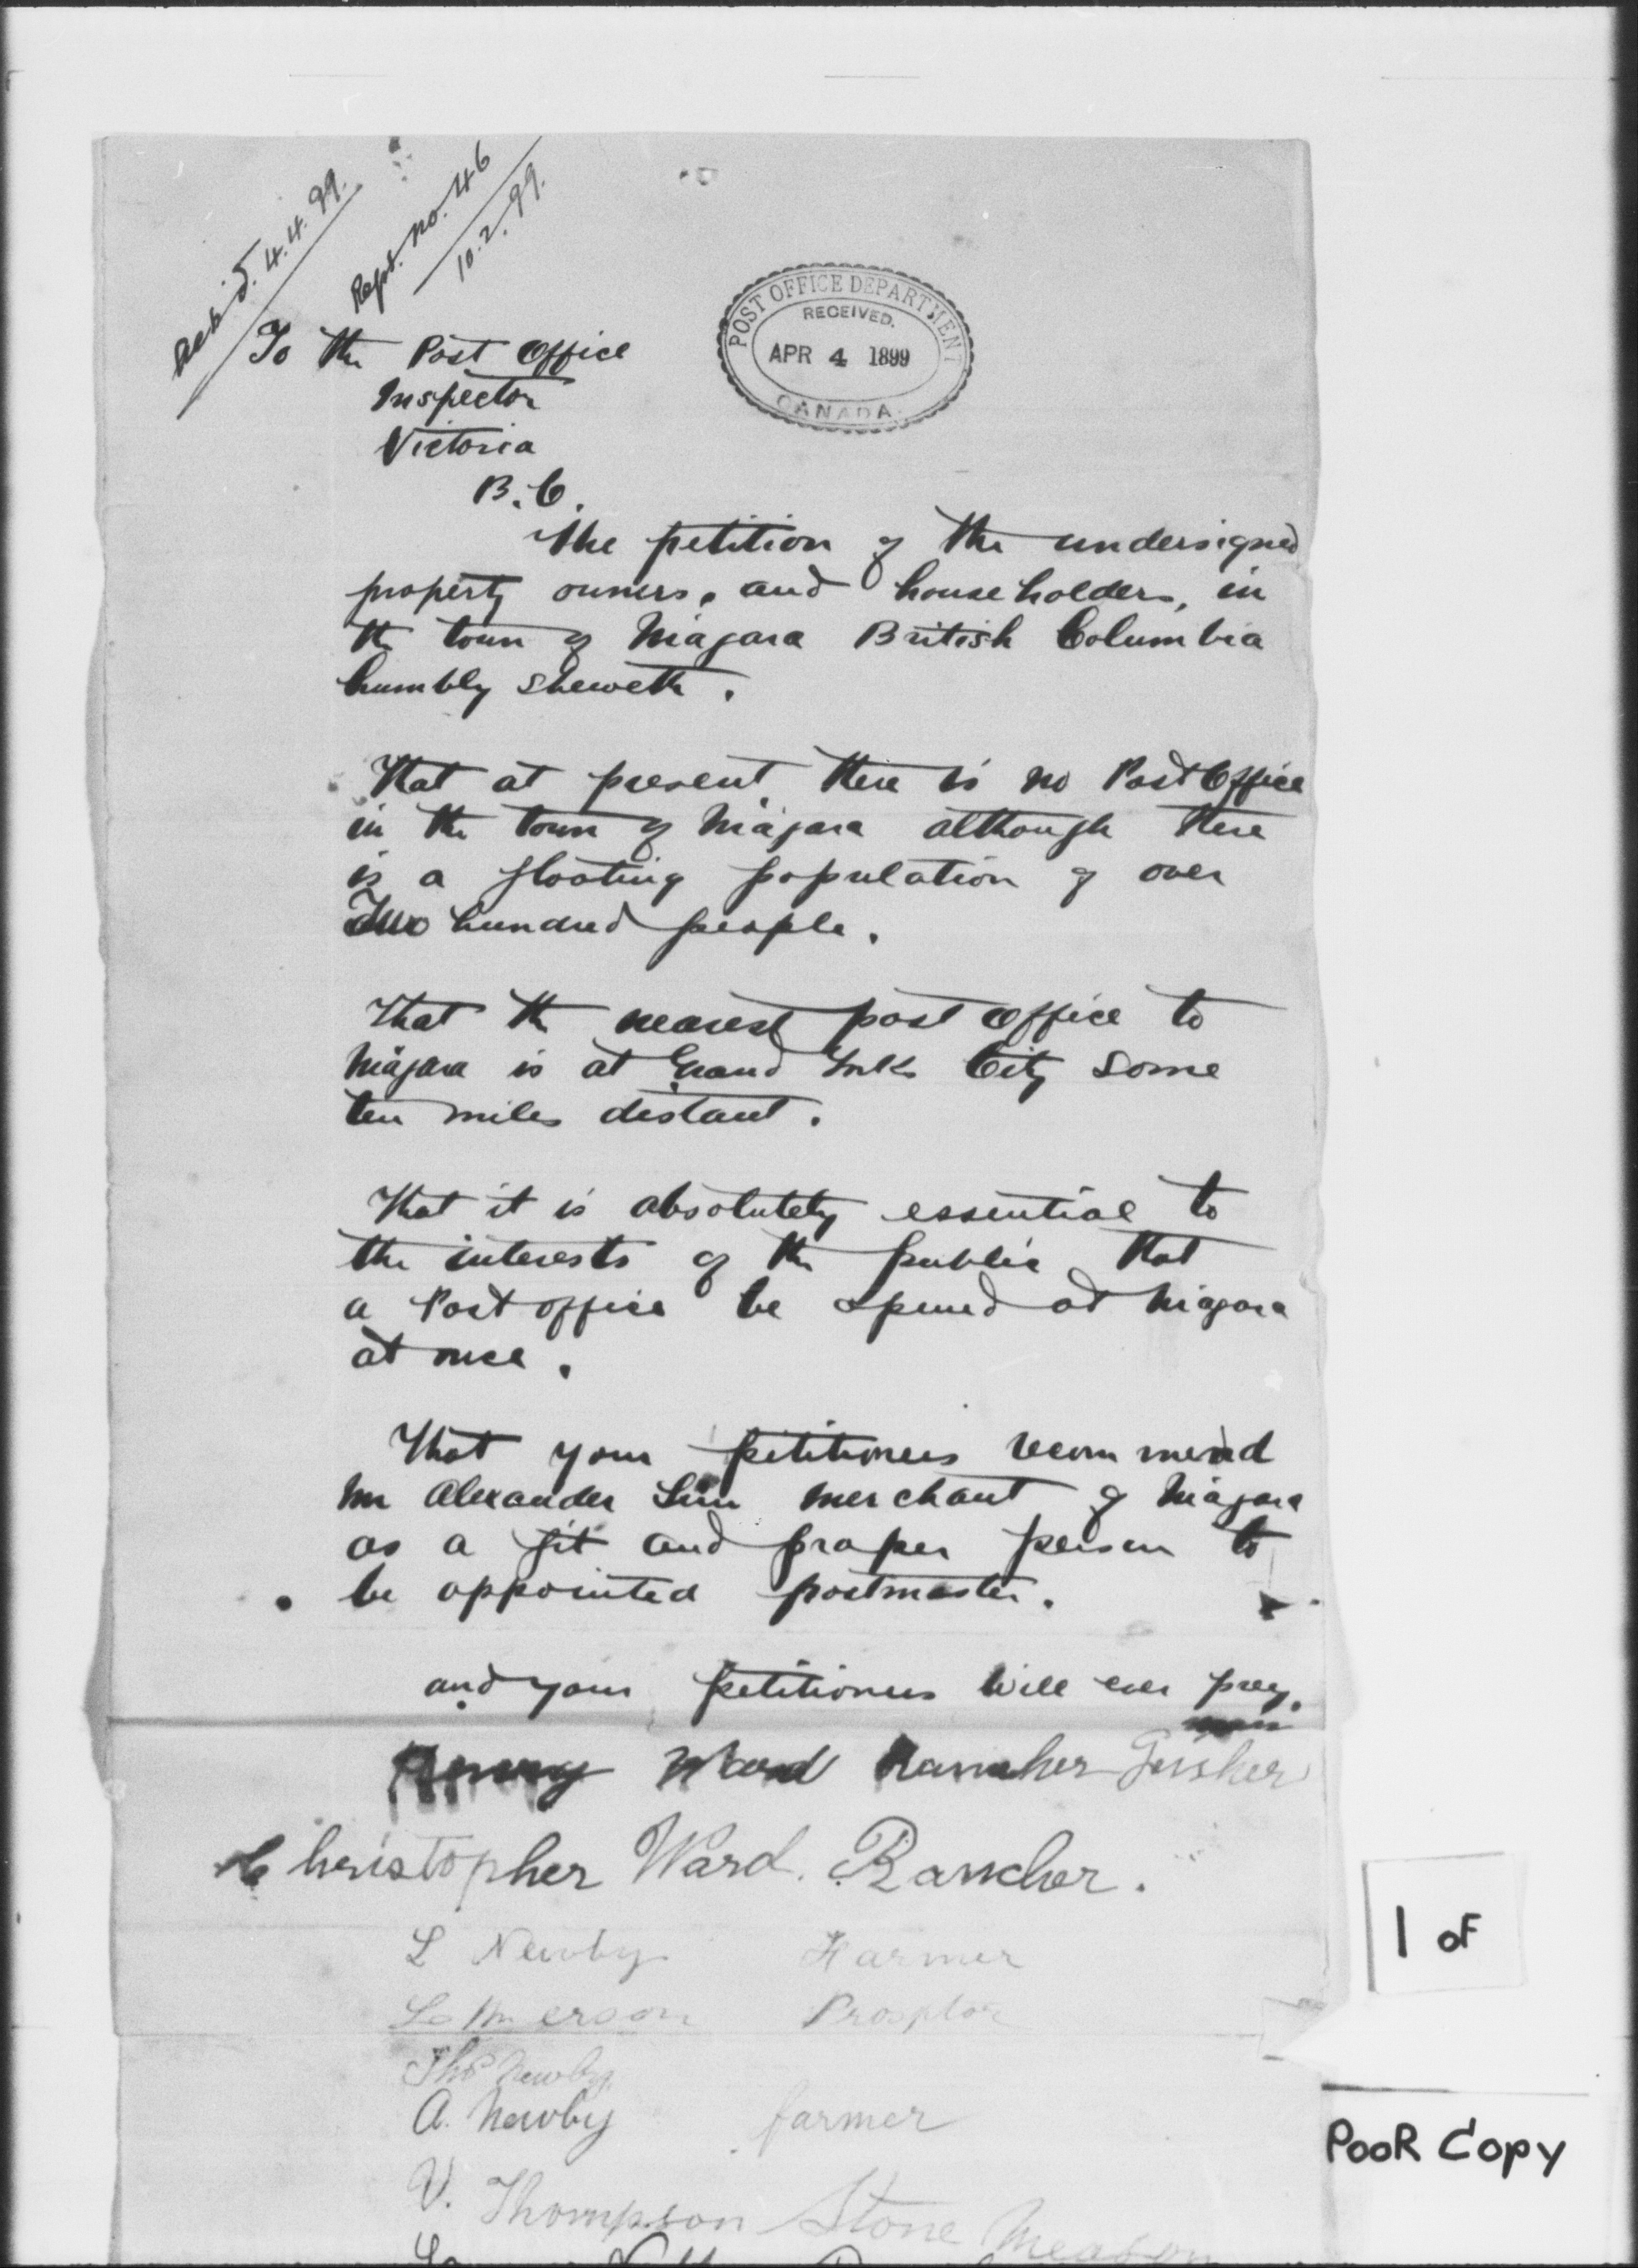 Ack'd. 4.4.99.
Rept. No. 46
10.2.99.
POST OFFICE DEPARTMENT
RECEIVED.
APR 4 1899
CANADA.
To the Post Office
Inspector
Victoria
B.C.
The petition of the undersigned
property owners, and householders, in
the town of Niagara British Columbia
humbly sheweth.
That at present there is no Post Office
in the town of Niagara although there
is a floating population of over
Two hundred people.
That the nearest post office to
Niagara is at Grand Forks City some
ten miles distant.
That it is absolutely essential to
the interests of the public that
a Post office be opened at Niagara
at once.
That your petitioners recommend
Mr Alexander Sim merchant of Niagara
as a fit and proper person to
be appointed postmaster.
and your petitioners will ever pray.
Ward Rancher
Christopher Ward. Rancher.
L Newby Farmer
Prosptor
Thos Newby
A. Newby farmer
V. Thompson Stone Meason
1 of
POOR COPY